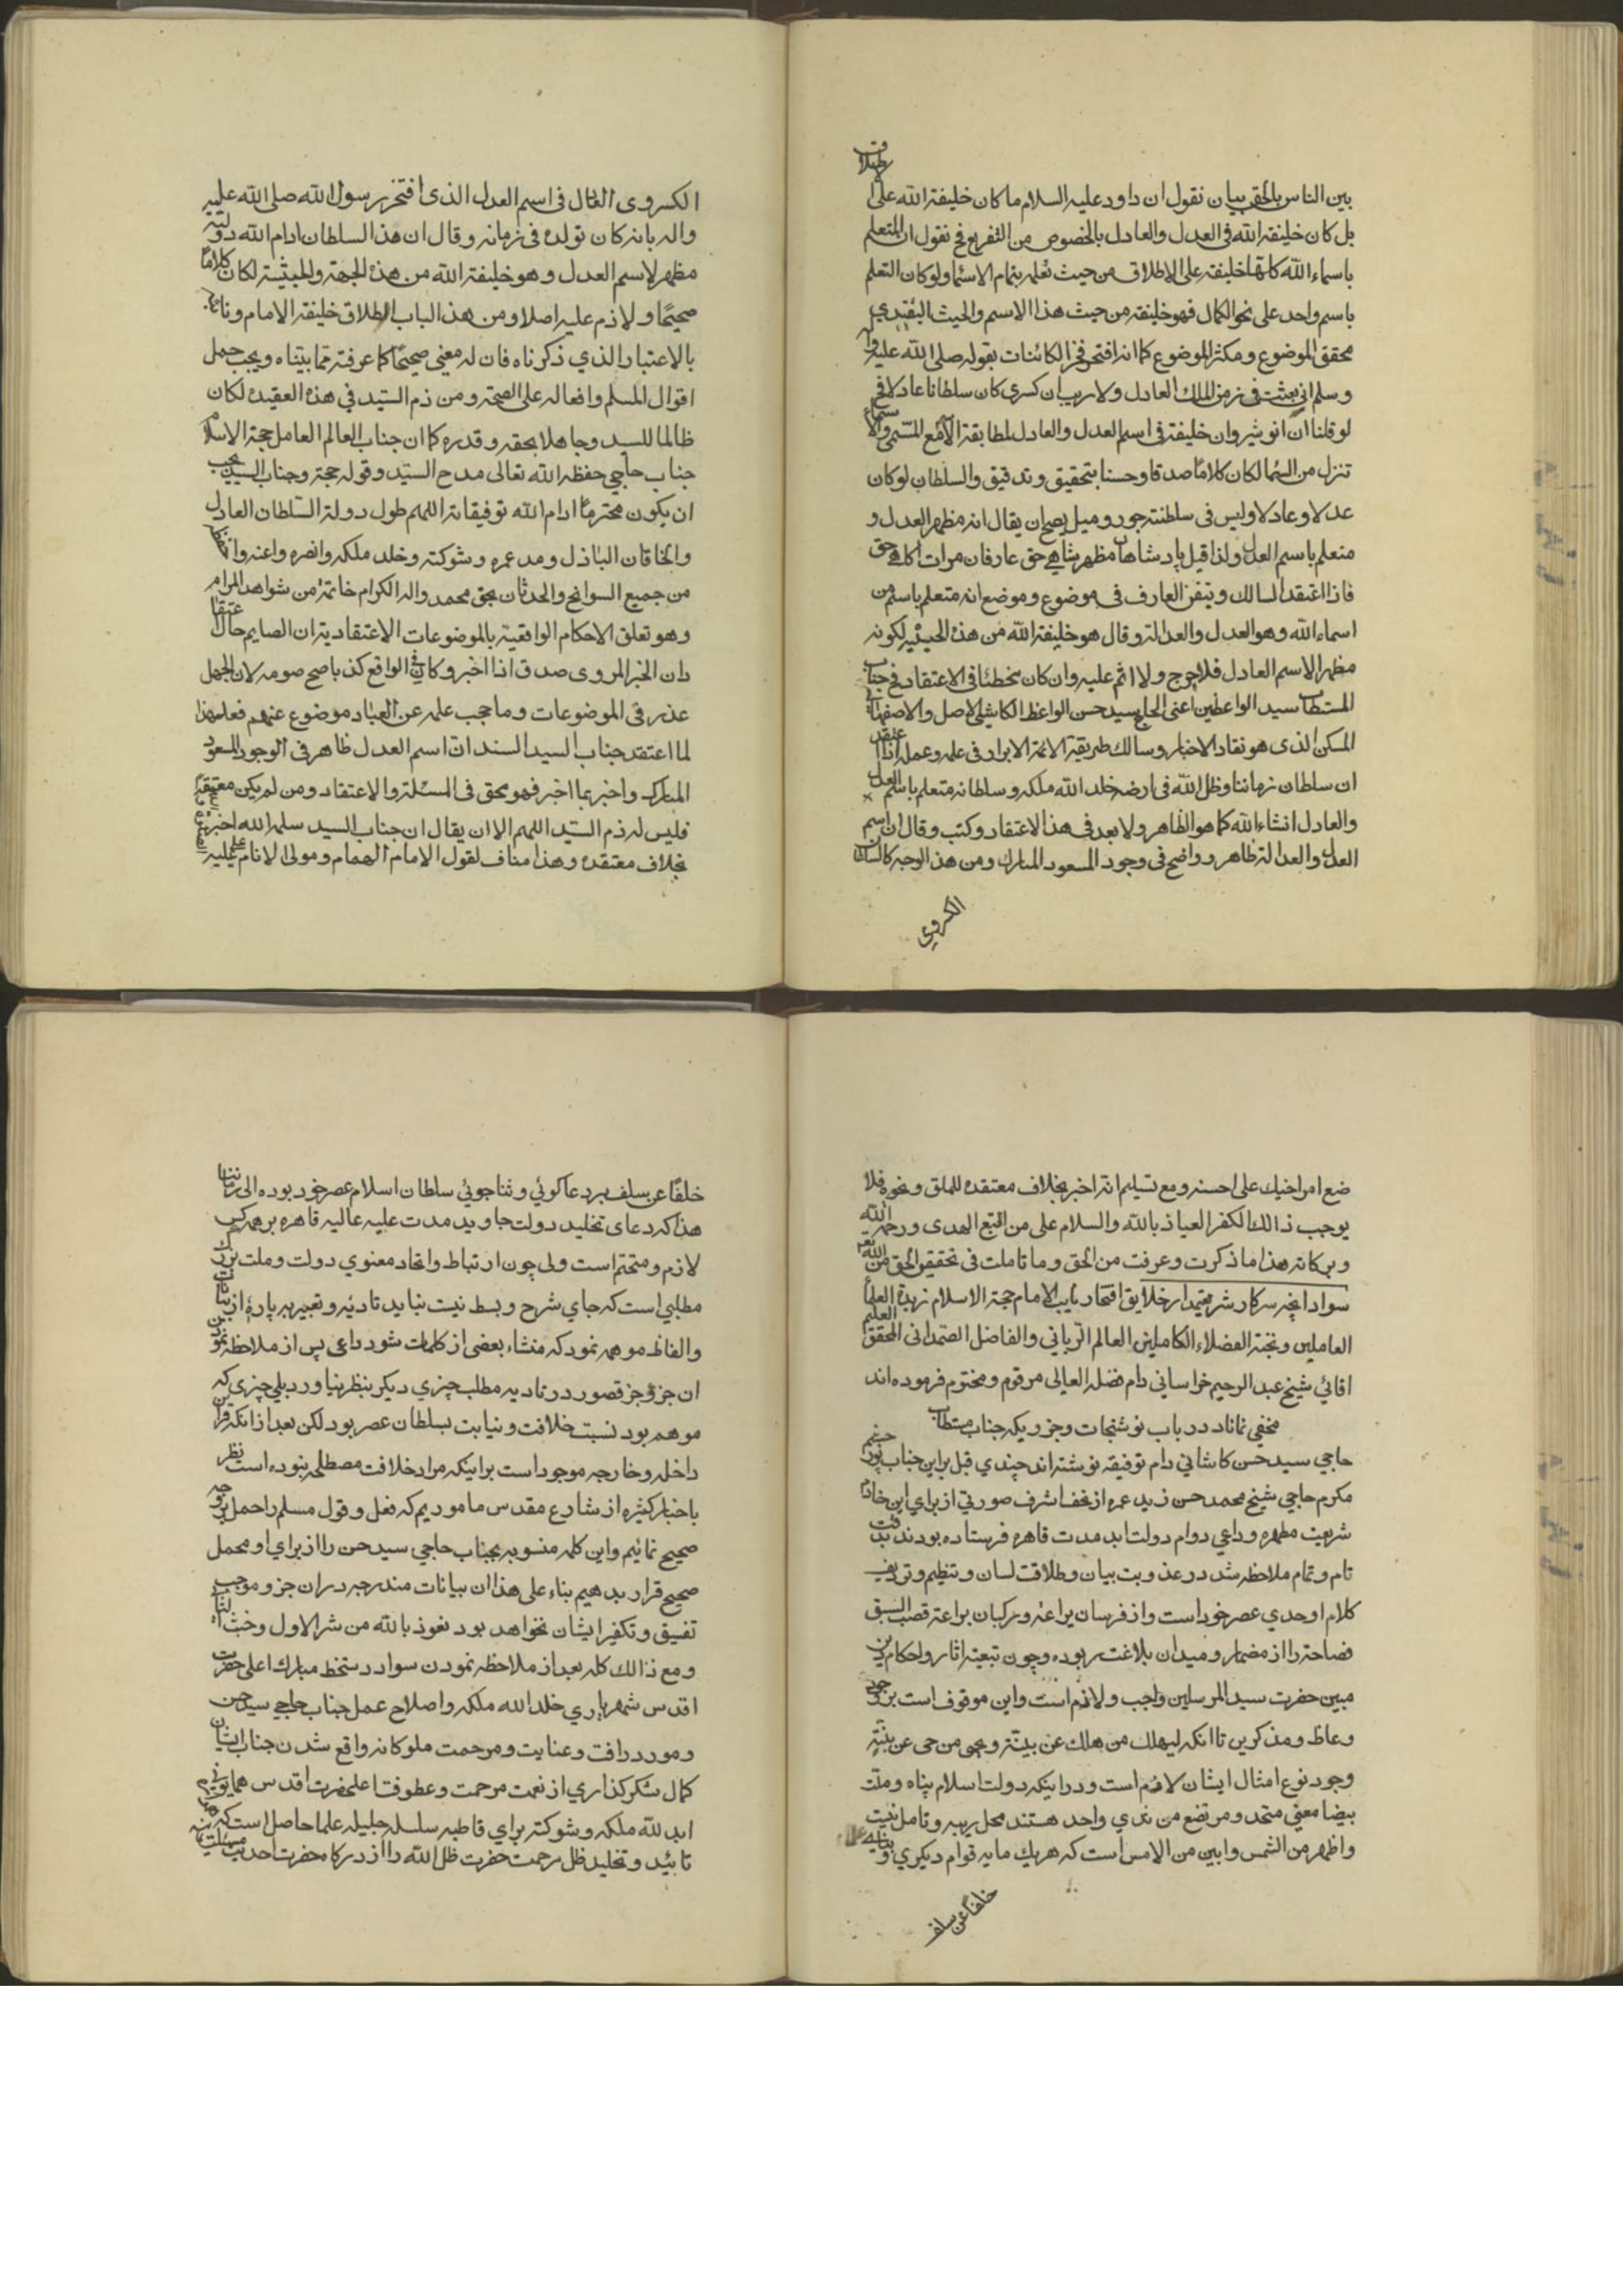 بين الناس بالحق بيان نقول ان داود عليه السلام ما كان خليفة الله على الاطلاق
بل كان خليفة الله فى العدل والعادل بالخصوص من التفريع فح نقول ان المتعلم
باسماء الله كلها خليفة على الاطلاق من حيث تعلمه بتمام الاسماء ولو كان التعلم
باسم واحد على نحو الكمال فهو خليفة من حيث هذا الاسم والحيث التقييدي
محقق الموضوع ومكثر الموضوع كما انه افتخر فخر الكائنات بقوله صلى الله عليه واله
وسلم انى بعثت فى زمن الملك العادل ولا ريب ان كسرى كان سلطانا عادلا فح
لو قلنا ان انوشيروان خليفة فى اسم العدل والعادل لمطابقة الاسم المسمى والاسماء
تنزل من السما لكان كلاما صدقا وحسنا بتحقيق وتدقيق والسلطان لو كان
عدلا وعادلا وليس فى سلطنته جور وميل يصح ان يقال انه مظهر العدل و
متعلم باسم العدل ولذا قيل پادشاهان مظهر شاهى حق عارفان مرات اكاهى حق
فاذا اعتقد السالك وتيقن العارف فى موضوع وموضع انه متعلم باسم من
اسماء الله وهو العدل والعدالة وقال هو خليفة الله من هذه الحيثية لكونه
مظهر الاسم العادل فلا حرج ولا اثم عليه وان كان مخطئا فى الاعتقاد فح جناب
المستطاب سيد الواعظين اعنى الحاج سيد حسن الواعظ الكاشى الاصل والاصفهانى
المسكن الذى هو نقاد الاخبار وسالك طريقة الائمة الابرار فى علمه وعمله اذا اعتقد
ان سلطان زماننا وظل الله فى ارضه خلد الله ملكه وسلطانه متعلم باسم العدل
والعادل انشاء الله كما هو الظاهر ولا بعد فى هذا الاعتقاد وكتب وقال ان اسم
العدل والعدالة ظاهر وواضح فى وجود المسعود المبارك ومن هذا الوجه كالسلطان
الكسروي
الكسروى القال فى اسم العدل الذى افتخر رسول الله صلى الله عليه
واله بانه كان تولده فى زمانه وقال ان هذا السلطان ادام الله دولته
مظهر لاسم العدل وهو خليفة الله من هذه الجهة والحيثية لكان كلاما
صحيحا ولا ذم عليه اصلا ومن هذا الباب اطلاق خليفة الامام ونائبه
بالاعتبار الذي ذكرناه فان له معنى صحيحا كما عرفته مما بيناه ويجب حمل
اقوال المسلم وافعاله على الصحة ومن ذم السيد فى هذه العقيدة لكان
ظالما للسيد وجاهلا بحقه وقدره كما ان جناب العالم العامل حجة الاسلام
جناب حاجى حفظه الله تعالى مدح السيد وقوله حجة وجناب السيد يجب
ان يكون محترما ادام الله توفيقاته اللهم طول دولة السلطان العادل
والخاقان الباذل ومد عمره وشوكته وخلد ملكه وانصره واعنه واحفظه
من جميع السوانح والحدثان بحق محمد واله الكرام خاتمة من شواهد المرام
وهو تعلق الاحكام الواقعية بالموضوعات الاعتقادية ان الصايم حال اعتقاد
ان الخبر المروى صدق اذا اخبر وكان فى الواقع كذبا صح صومه لان الجهل
عذر فى الموضوعات وما حجب علمه عن العباد موضوع عنهم فعلى هذا
لما اعتقد جناب السيد السند ان اسم العدل ظاهر فى الوجود المسعود
المبارك واخبر بما اخبر فهو محق فى المسئلة والاعتقاد ومن لم يكن معتقدا
فليس له ذم السيد اللهم الا ان يقال ان جناب السيد سلمه الله اخبر
بخلاف معتقده وهذا مناف لقول الامام الهمام ومولى الانام عليه
ضع امر اخيك على احسنه ومع تسليم انه اخبر بخلاف معتقده للملق ونحوه فلا
يوجب ذالك الكفر العياذ بالله والسلام على من اتبع الهدى ورحمة الله
وبركاته هذا ما ذكرت وعرفت من الحق وما تاملت فى تحقيق الحق من الله
سواد انچه سركار شريعتمدار خلايق افتخار نايب الامام حجة الاسلام زبدة العلماء
العاملين ونخبة الفضلاء الكاملين العالم الربانى والفاضل الصمدانى المحقق العليم
اقائي شيخ عبد الرحيم خراسانى دام فضله العالى مرقوم ومختوم فرموده اند
مخفى نماناد در باب نوشتجات وجزويكه جناب مستطاب
حاجي سيد حسن كاشانى دام توفيقه نوشته اند چندي قبل بر اين جناب
مكرم حاجي شيخ محمد حسن زيد عمره از نجف اشرف صورتي از براي اين خادم
شريعت مطهره وداعى دوام دولت ابد مدت قاهره فرستاده بودند بدقت
تام وتمام ملاحظه شد در عذوبت بيان وطلاقت لسان وتنظيم وترديف
كلام اوحدي عصر خود است واز فرسان يراعه وركبان براعه قصب السبق
فصاحت را از مضمار وميدان بلاغت ربوده وچون تبعيت اثار واحكام دين
مبين حضرت سيد المرسلين واجب ولازم است واين موقوف است بر وجود
وعاظ ومذكرين تا انكه ليهلك من هلك عن بينة ويحيى من حى عن بينة
وجود نوع امثال ايشان لازم است ودر اينكه دولت اسلام پناه وملت
بيضا معنى متحد ومرتضع من ثدي واحد هستند محل ريبه وتامل نيست
واظهر من الشمس وابين من الامس است كه هر يك مايه قوام ديكري و
خلفا عن سلف
خلفا عن سلف بر دعا كوئي وثنا جوئي سلطان اسلام عصر خود بوده الى زماننا
هذا كه دعاى تخليد دولت جاويد مدت عليه عاليه قاهره بر همه كس
لازم ومتحتم است ولى چون ارتباط واتحاد معنوي دولت وملت بزرك
مطلبي است كه جاي شرح وبسط نيست نبايد تاديه وتعبير به پاره از بيانات
والفاظ موهمه نمود كه منشاء بعضى از كلمات شود داعى پس از ملاحظه نمودن
ان جزو جز قصور در تاديه مطلب چيزي ديكر بنظر نياورد بلى چيزى كه
موهم بود نسبت خلافت ونيابت بسلطان عصر بود لكن بعد از انكه قرائن
داخله وخارجه موجود است بر اينكه مراد خلافت مصطلحه نبوده است نظر
باخبار كثيره از شارع مقدس ماموريم كه فعل وقول مسلم را حمل بر وجه
صحيح نمائيم واين كلمه منسوبه بجناب حاجي سيد حسن را از براي او محمل
صحيح قرار بدهيم بناء على هذا ان بيانات مندرجه در ان جزو موجب
تفسيق وتكفير ايشان نخواهد بود نعوذ بالله من شر الاول وخبث الثانى
ومع ذالك كله بعد از ملاحظه نمودن سواد دستخط مبارك اعلى حضرت
اقدس شهرياري خلد الله ملكه واصلاح عمل جناب حاجي سيد حسن
ومورد رافت وعنايت ومرحمت ملوكانه واقع شدن جناب ايشان
كمال شكر كذاري از نعمت مرحمت وعطوفت اعلى حضرت اقدس همايونى
ابد الله ملكه وشوكته براي قاطبه سلسله جليله علما حاصل است كه
تائيد وتخليد ظل مرحمت حضرت ظل الله را از دركاه حضرت احديت